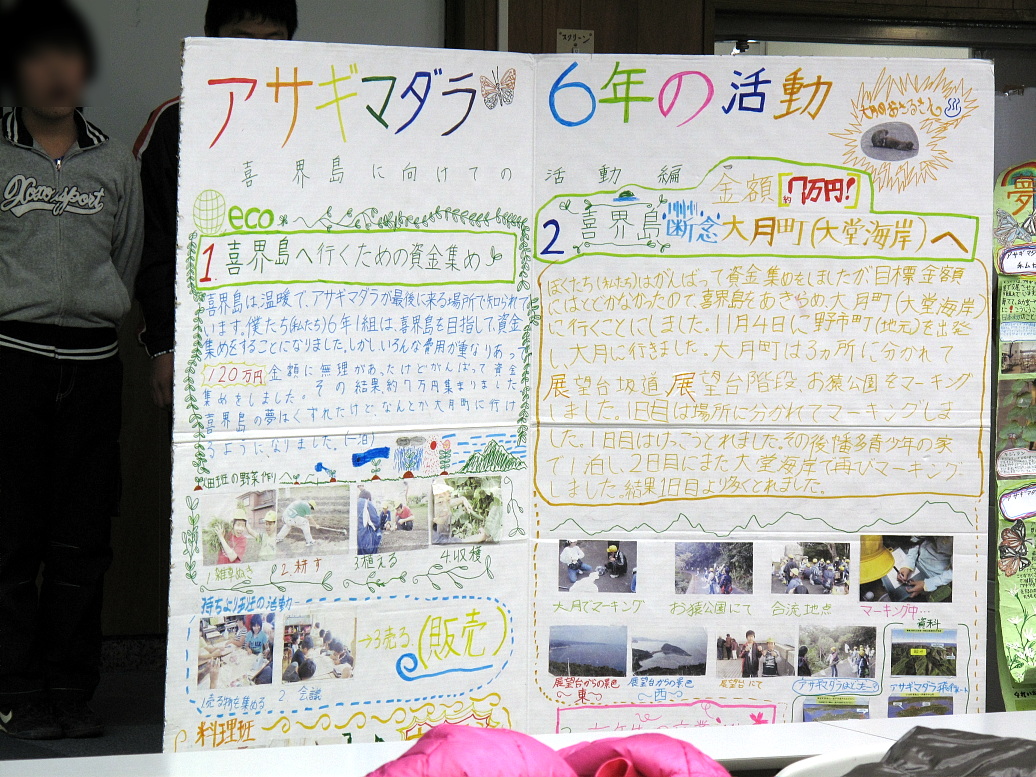 アサギマダラ
6年の活動
大月のおさるさん
喜界島に向けての
活動編
金額[約7万円!]
eco
1.喜界島へ行くための資金集め
喜界島は温暖で、アサギマダラが最後に来る場所で知られて
います。僕たち(私たち)6年1組は、喜界島を目指して、資金
集めをすることになりました。しかし、いろんな費用が重なりあって
120万円 金額に無理があったけどがんばって資金
集めをしました。その結果、約7万円集まりました
喜界島の夢はくずれたけど、なんとか大月町に行け
るようになりました。(一泊)
畑班の野菜作り
1雑草ぬき
2.耕す
3植える
4収穫
持ちより班の活動
→3売る(販売)
1売る物を集める
2 会議
料理班
2 喜界島断念大月町(大堂海岸)へ
ぼくたち(私たち)はがんばって資金集めをしましたが、目標金額
にはとどかなかったので、喜界島をあきらめ、大月町(大堂海岸)
に行くことにしました。11月4日に野市町(地元)を出発
し、大月に行きました。大月町は3ヵ所に分かれて
展望台坂道、展望台階段、お猿公園をマーキング
しました。1日目は場所に分かれてマーキングしま
した。1日目はけっこうとれました。その後、幡多青少年の家
で1泊し、2日目にまた大堂海岸で再びマーキング
しました。結果1日目より多くとれました。
大月でマーキング
お猿公園にて
合流地点
マーキング中…
資料
展望台からの景色
～東～
展望台からの景色
～西～
展望台にて
アサギマダラはどこ～?
夢
"スクリーン"
Xoxo sport